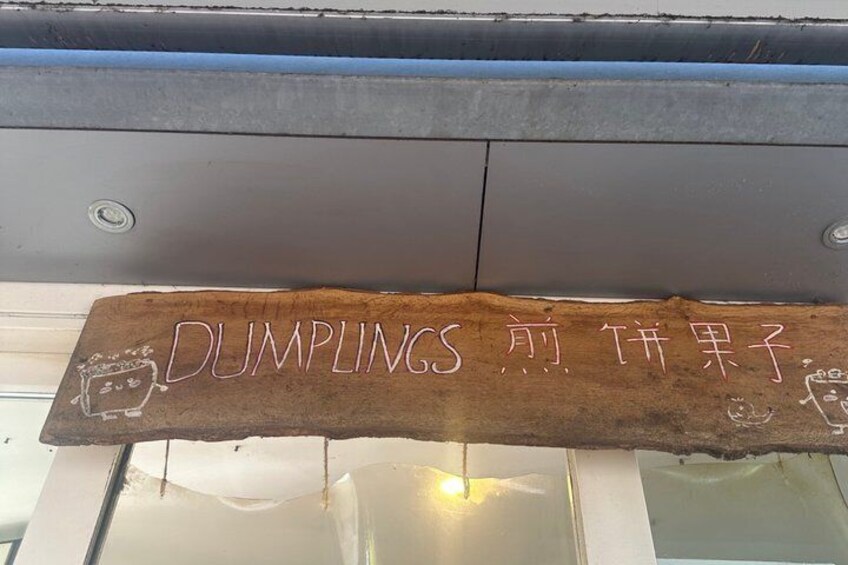 DUMPLINGS 煎饼果子